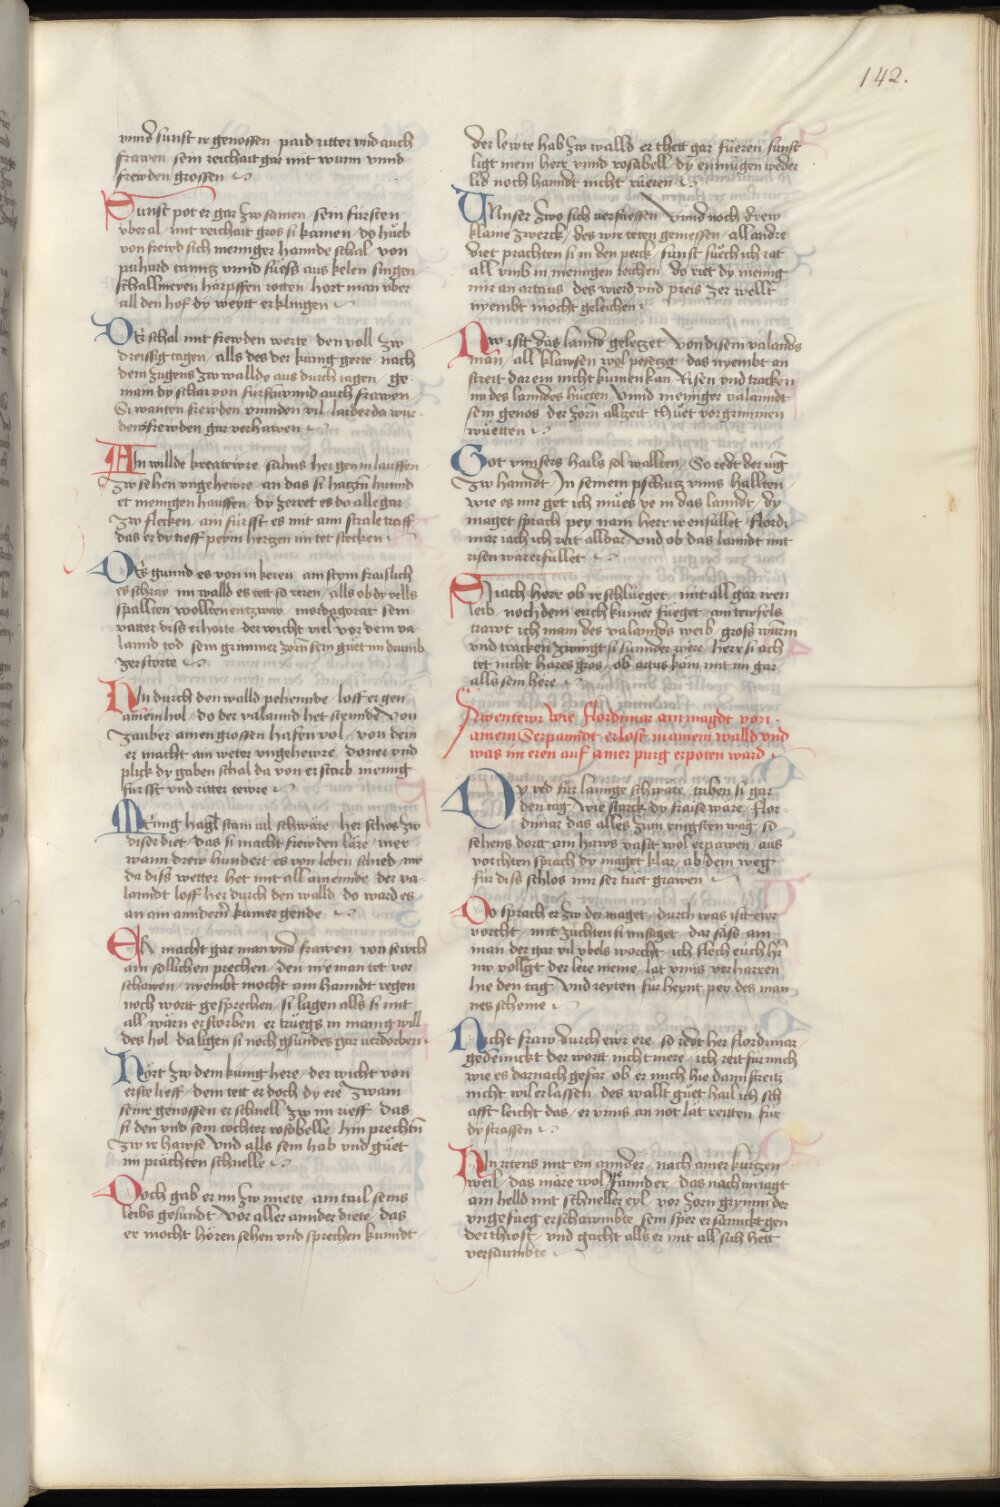 142.
vnnd sunst ir genossen paid ritter vnd auch
frawen sein reichait gar mit wunn vnnd
frewden grossen
Sunst pot er gar zw samen sein fürsten
vberal mit reichait gros si kamen do hueb
von frewd sich meniger hannde schal von
puhurd tanntz vnnd süess aus kelen singen
schallmeyen harpffen rotten hort man vber
all den hof dy weytt erklingen
Der schal mit frewden werte den voll zw
dreissig tagen alls des der kunig gerte nach
dem zugens zw wallde aus durch iagen ge
main dy schar von fürstn vnnd auch frawen
Si wanten frewden vinnden vil laider da wur
den frewden gar verhawen
Ain willde kreatewre sahns her gein in lauffen
zw sehen vngehewre an das si hatztn hunnd
et menigen hauffen dy zerret es do alle gar
zw flecken ain fürsst es mit ainr strale traff
das er dy tieff peym hertzen im tet stecken
Es gunnd es von in keren ain stym fraislich
es schray im walld es tett so reren alls ob dy vells
spallten wollten entzway mordagorat sein
vatter diss erhorte der wicht viel vor dem va
lannd tod sein grimmer zorn sein güet im drumb
zerstorte
Nin durch den walld pehennde loff er gen
ainem hol do der valannd het steunde von
zauber ainen grossen hafen vol von dem
er macht ain weter vngehewre doner vnd
plick dy gaben schal da von er starb menig
fürsst vnd ritter tewre
Menig hagl stain vil schwäre her schos zw
diser diet das si macht frewden läre mer
wann drew hundert es von leben schied wo
da diss wetter het mit all ain ennde der va
lanndt loff her durch den walld do ward es
an ain anndern kumer gende
Er macht gar man vnd frawen von sewch
ain sollichen prechen den nye man tet vor
schawen nyembt mocht ain hanndt regen
noch wortt gesprechen si lagen alls si mit
all wärn erstorben er truegs in manig will
des hol da ligen si noch gsundes gar verdorben
Hört zw dem kunig here der wicht von
erste lieff dem tett er doch dy ere zwain
seinr genossen er schnell zw im rieff das
si den vnd sein tochter rosabelle hin prechtn
zw ir hawse vnd alls sein hab vnd güet
im prächten schnelle
Doch gab er im zw miete ain tail seins
leibs gesundt vor aller annder diete das
er mocht hören sehen vnd sprechen kunndt
der lewte hab zw walld er thett gar fueren sunst
ligt mein herr vnnd rosabell dy enmugen weder
lid noch hanndt nicht rüeren
Unnser zwo sich verstiessen vnnd noch drew
klaine zwerck des wir teten geniessen all andre
diet prachten si in den perck sunst suech ich rat
all vmb in menigen reichen do riet dy menig
mir an artaus des wierd vnd preis zer wellt
nyembt mocht geleichen
Nw ist das lannd geletzet von disem valands
man all klawsen wol pesetzet das nyembt an
streit dar ein nicht kumen kan Risen vnd tracken
im des lanndes hueten vnnd meniger valanndt
sein genos der zorn allzeit thuet vor grimmen
wüetten
Got vnnsers hails sol wallten So redt der iung
zw hanndt In seinem pschutz vnns hallten
wie es mir get ich mües ye in das lanndt dy
maget sprach pey nam herr ir ensüllet flordi
mar iach ich reit alldar vnd ob das lanndt mit
risen war erfüllet
Si iach herr ob ir schlüeget mit all gar iren
leib noch dem euch kumer füeget ain tewfels
trawt ich main des valandes weib gross würm
vnd tracken zwingt si sunnder were herr si ach
tet nicht hares gros ob artus kam mit im gar
all sein here
Awentewr wie flordimar ain magdt von
ainem Serpanndt erlost in ainem walld vnd
was im eren auf ainer purg erpoten ward
Dy red für launge schwäre triben si gar
den tag wie starck dy fraise wäre flor
dimar das alles zum ringsten wag so
sehens dortt ain haws vast wol erpawen aus
vorchten sprach dy maget klar ab dem weg
für diss schlos mir ser tuet grawen
Do sprach er zw der maget durch was ist ewr
vorcht mit züchten si im saget dar säss ain
man der gar vil vbels worcht ich flech euch hr
nw vollgt der lere meine lat vnns verharren
hie den tag vnd reyten für heynt pey des man
nes scheine
Nicht fraw durch ewr ere so redt her flordimar
gedennckt der wortt nicht mere ich reit für nich
wie es darnach gefar ob er mich hie dann streitz
nicht wil erlassen des wallt güet hail ich sch
afft leicht das er vnns an not lät reitten für
dy strassen
Nin ritens mit ein annder nach ainer kurtzen
weil das märe wol pfannd er das nach im iagt
ain helld mit schneller eyl vor zorn grymm der
vngefueg erschawmbte sein sper er sannckt gen
der thiost vnd gacht alls er mit all sich hett
versaumbte